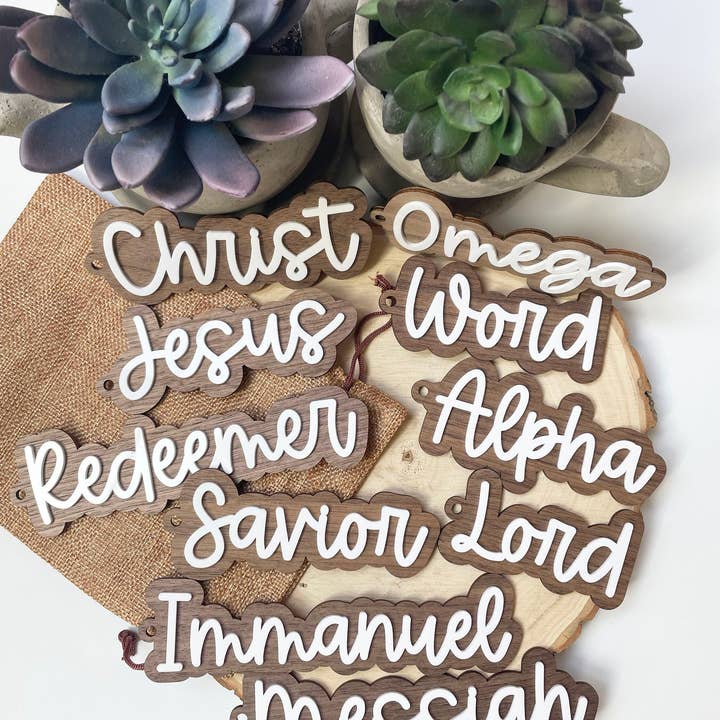 Christ
Omega
Jesus
Word
Redeemer
Alpha
Savior
Lord
Immanuel
Messiah